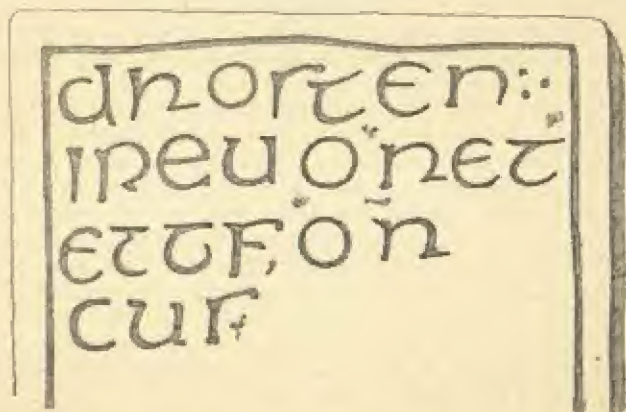 drosten:·
ipeuoret
ettfor
cus